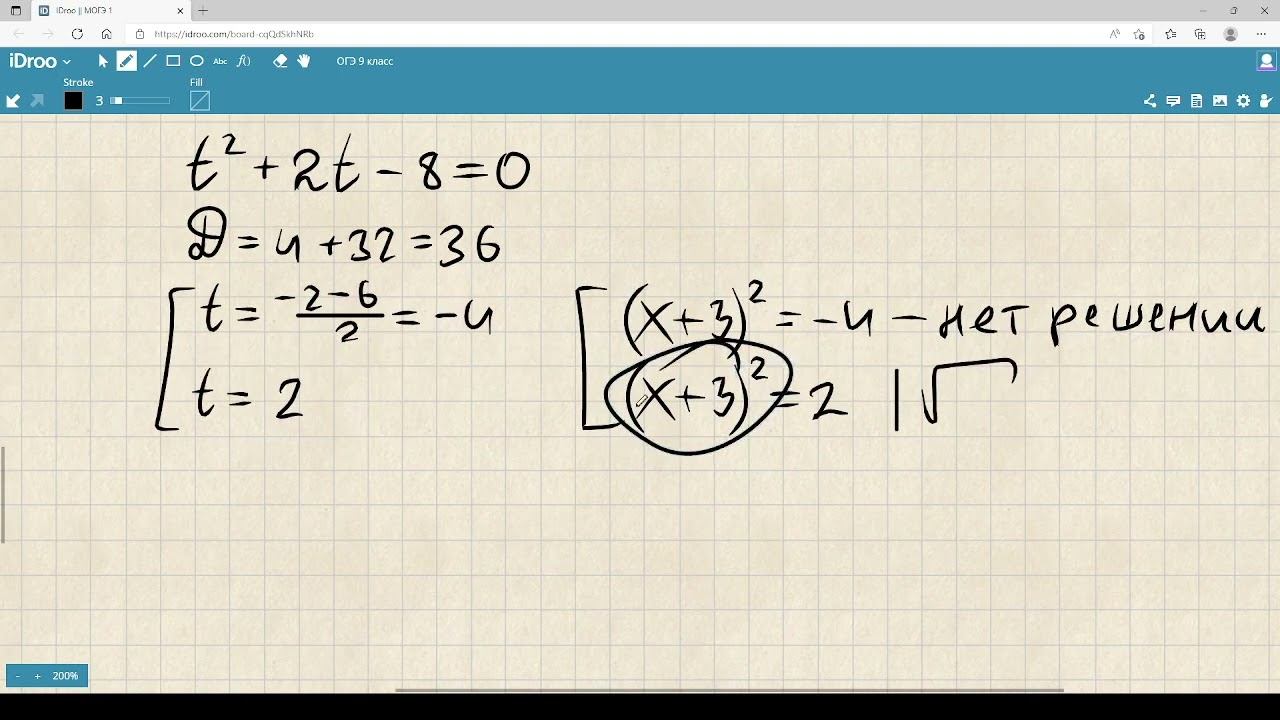 IDroo || МОГЭ 1
https://idroo.com/board-cqQdSkhNRb
iDroo
Abc
f()
ОГЭ 9 класс
Stroke
Fill
3
t² + 2t - 8 = 0
D = 4 + 32 = 36
[ t = (-2-6)/2 = -4
t = 2
[ (x+3)² = -4 — нет решении
(x+3)² = 2 | √
- + 200%